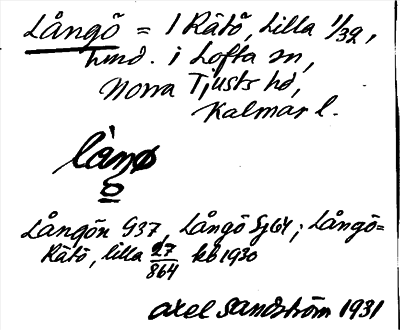 Långö = 1 Rätö, Lilla 1/32,
hmd. i Lofta sn,
Norra Tjusts hd,
Kalmar l.
lånö
Långön G37, Långö Sj64; Långö=
Rätö, lilla 27/864 kb 1930
Axel Sandström 1931